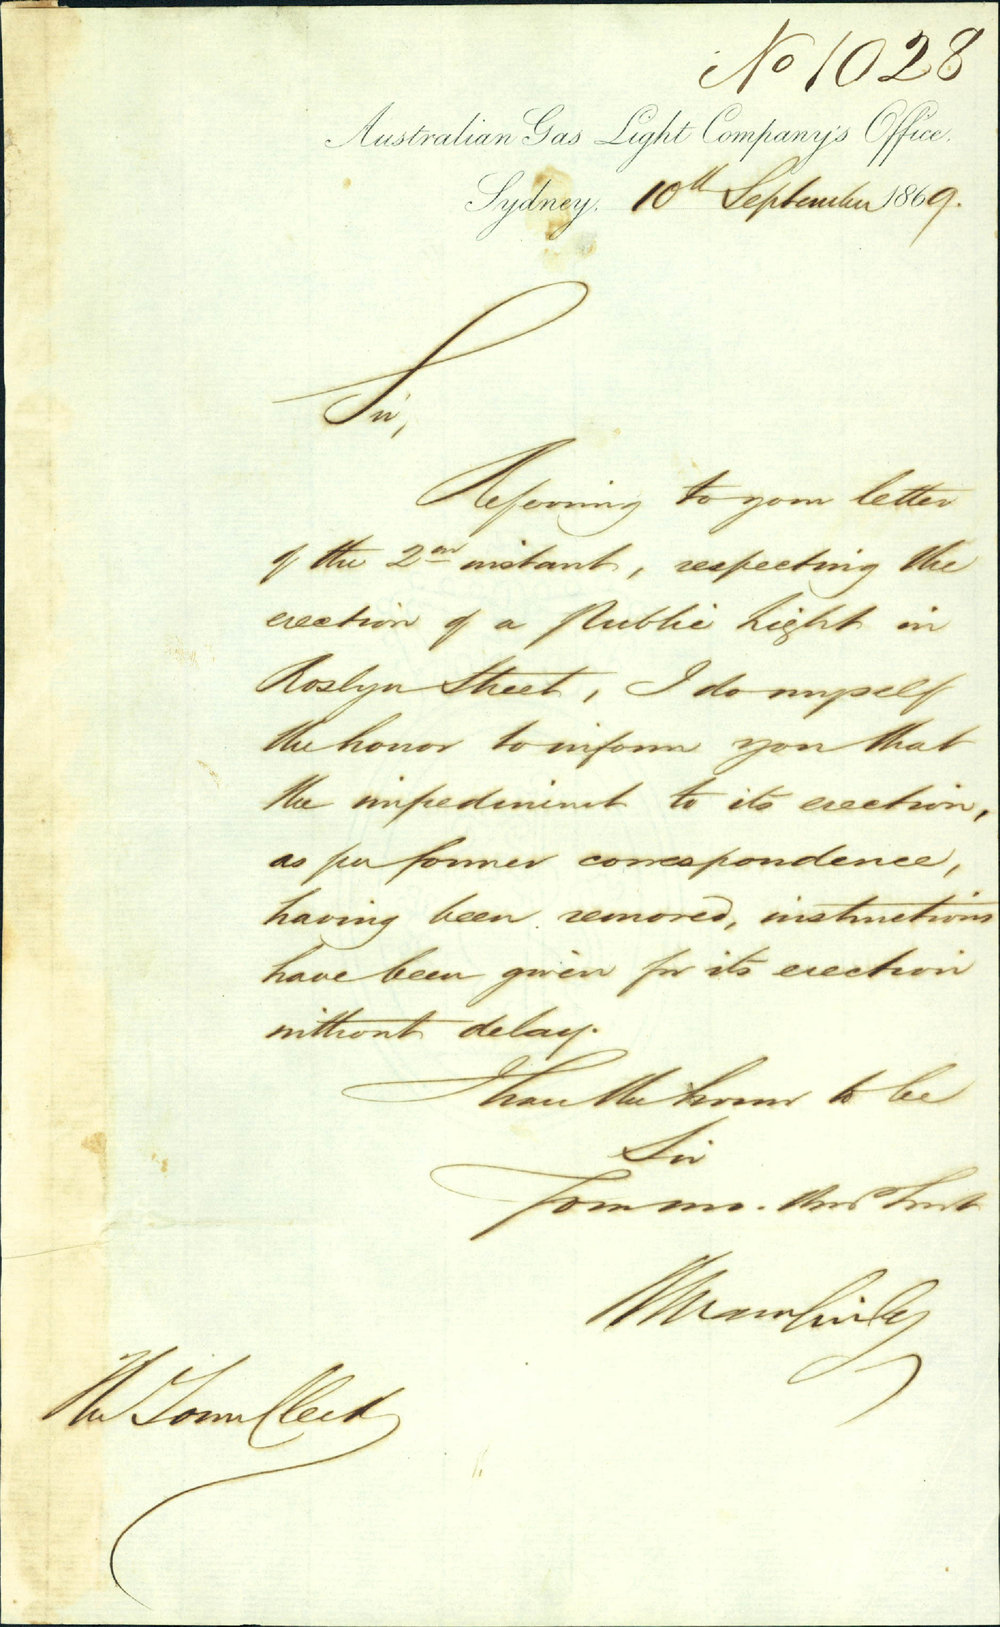 No 1028
Australian Gas Light Company's Office.
Sydney. 10th September 1869.
Sir,
Referring to your letter
of the 2nd instant, respecting the
erection of a Public Light in
Roslyn Street, I do myself
the honor to inform you that
the impediment to its erection,
as per former correspondence,
having been removed, instructions
have been given for its erection
without delay.
I have the honor to be
Sir
Your mo. Obed Servt
The Town Clerk